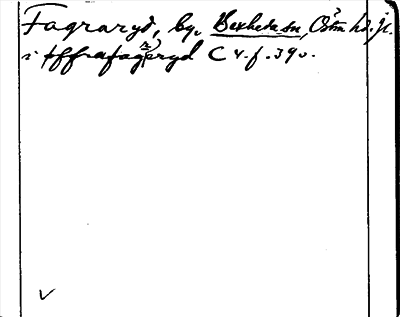 Fagraryd, by, Bexheda sn, Östra hd. Jk.
i offrafageryd C 4. f. 390.